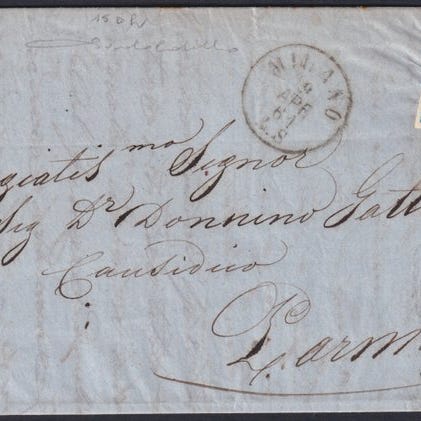 MILANO
9
APR
61
giatis mo Signor
Sig Dr Donnino Gatt
Causidico
Parm